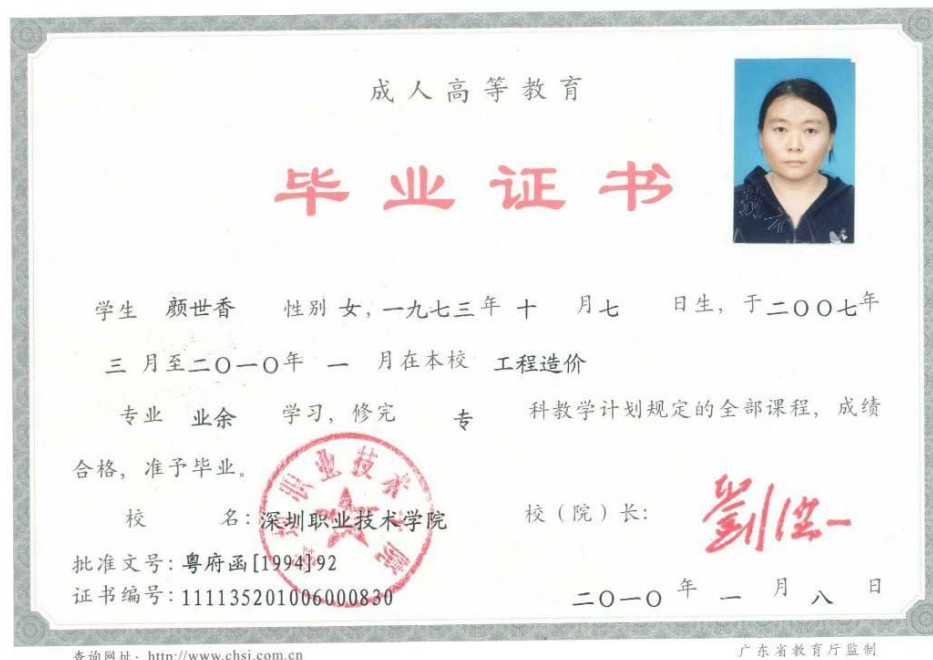 成人高等教育
毕业证书
学生 颜世香 性别 女，一九七三年 十 月七 日生，于二〇〇七年
三 月至二〇一〇年 一 月在本校 工程造价
专业 业余 学习，修完 专 科教学计划规定的全部课程，成绩
合格，准予毕业。
校 名：深圳职业技术学院
校（院）长：
批准文号：粤府函[1994]92
证书编号：111135201006000830
二〇一〇 年 一 月 八 日
查询网址：http://www.chsi.com.cn
广东省教育厅监制